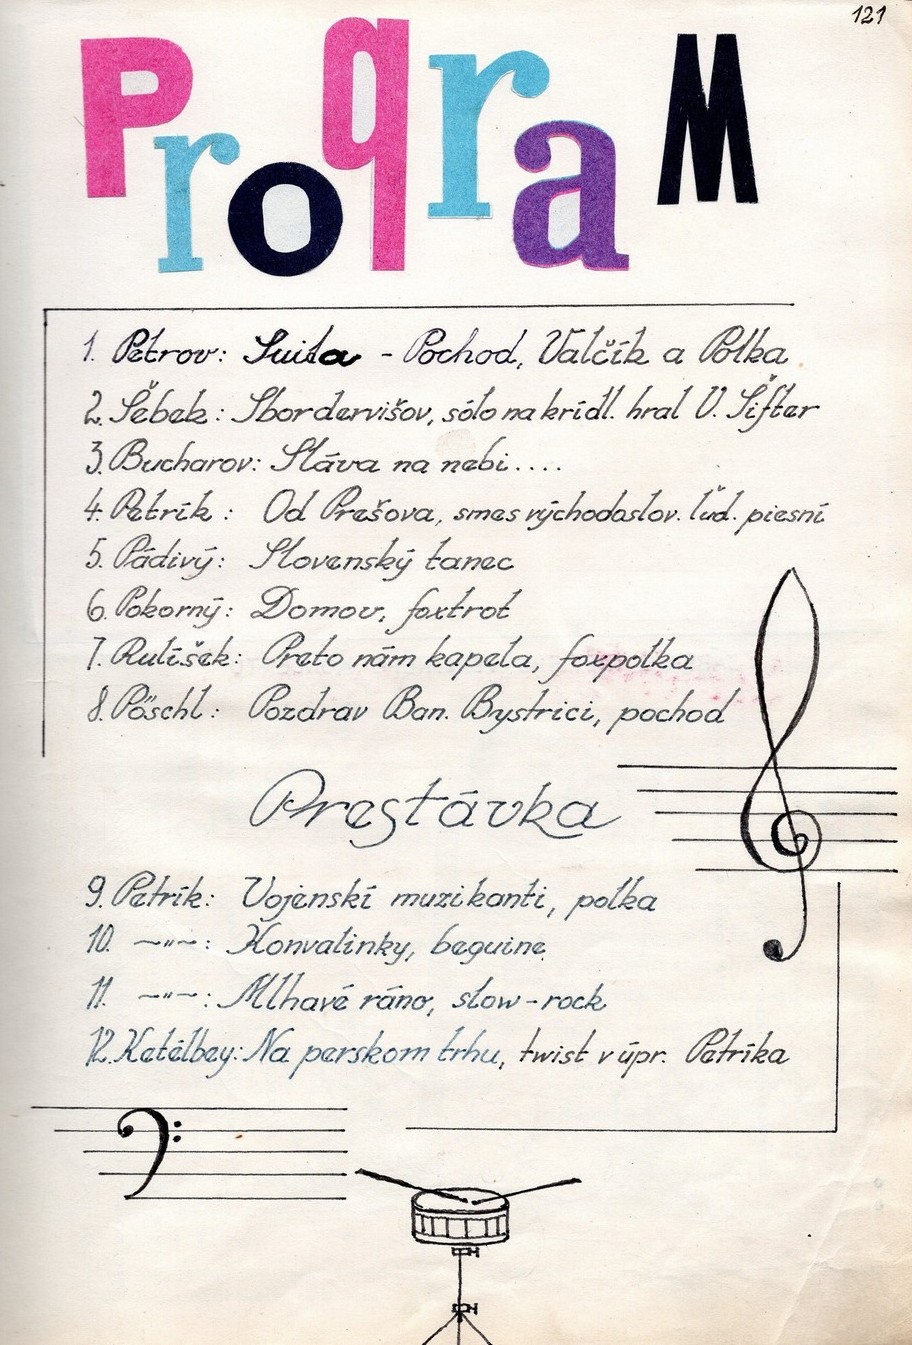 121
Program
1. Petrov: Suita - Pochod, Valčík a Polka
2. Šebek: Sbor dervišov, sólo na krídl. hral V. Šifter
3. Bucharov: Sláva na nebi....
4. Petrík: Od Prešova, smes východoslov. ľud. piesní
5. Pádivý: Slovenský tanec
6. Pokorný: Domov, foxtrot
7. Rulíšek: Preto nám kapela, foxpolka
8. Pöschl: Pozdrav Ban. Bystrici, pochod
Prestávka
9. Petrík: Vojenskí muzikanti, polka
10. —"— : Konvalinky, beguine
11. —"— : Mlhavé ráno, slow-rock
12. Ketélbey: Na perskom trhu, twist v úpr. Petríka